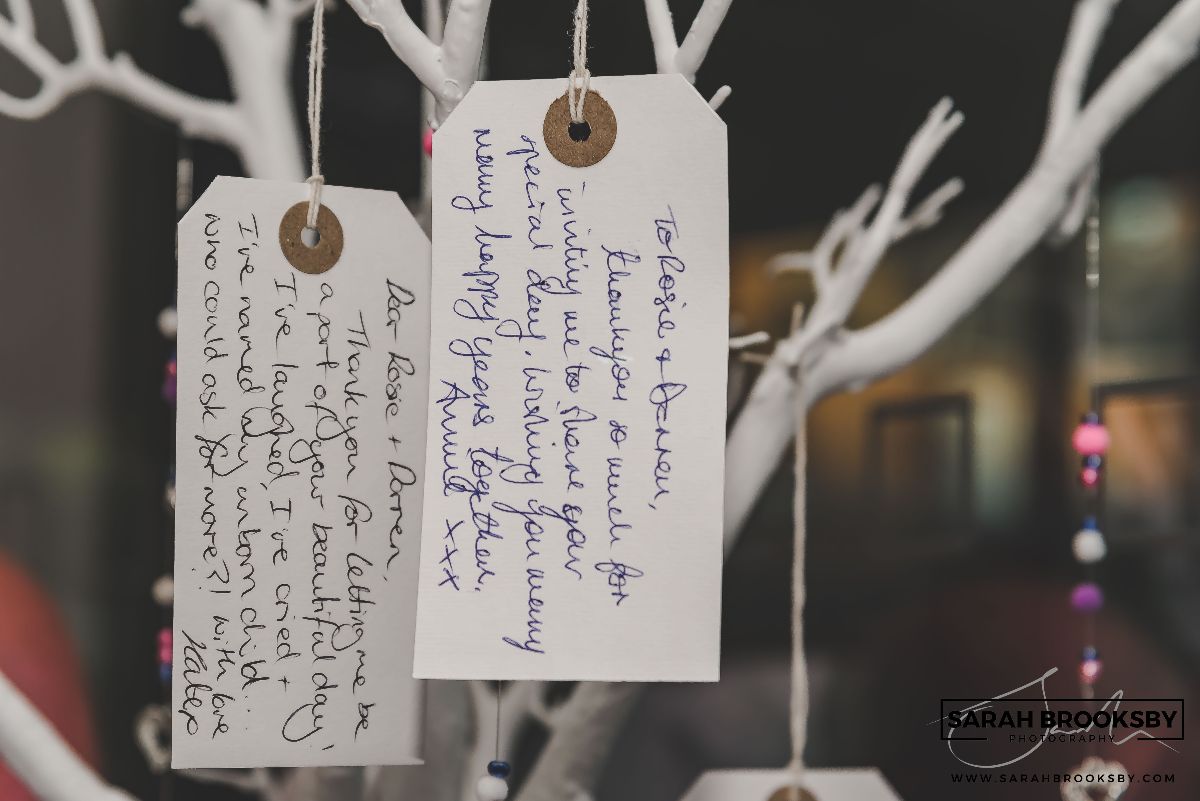 Dear Rosie + Darren,
Thankyou for letting me be
a part of your beautiful day,
I've laughed, I've cried +
I've named my unborn child...
who could ask for more?! With love
Katep
To Rosie & Darren,
thankyou so much for
inviting me to share your
special day. Wishing you many
many happy years together.
Annie xxx
SARAH BROOKSBY
PHOTOGRAPHY
WWW.SARAHBROOKSBY.COM